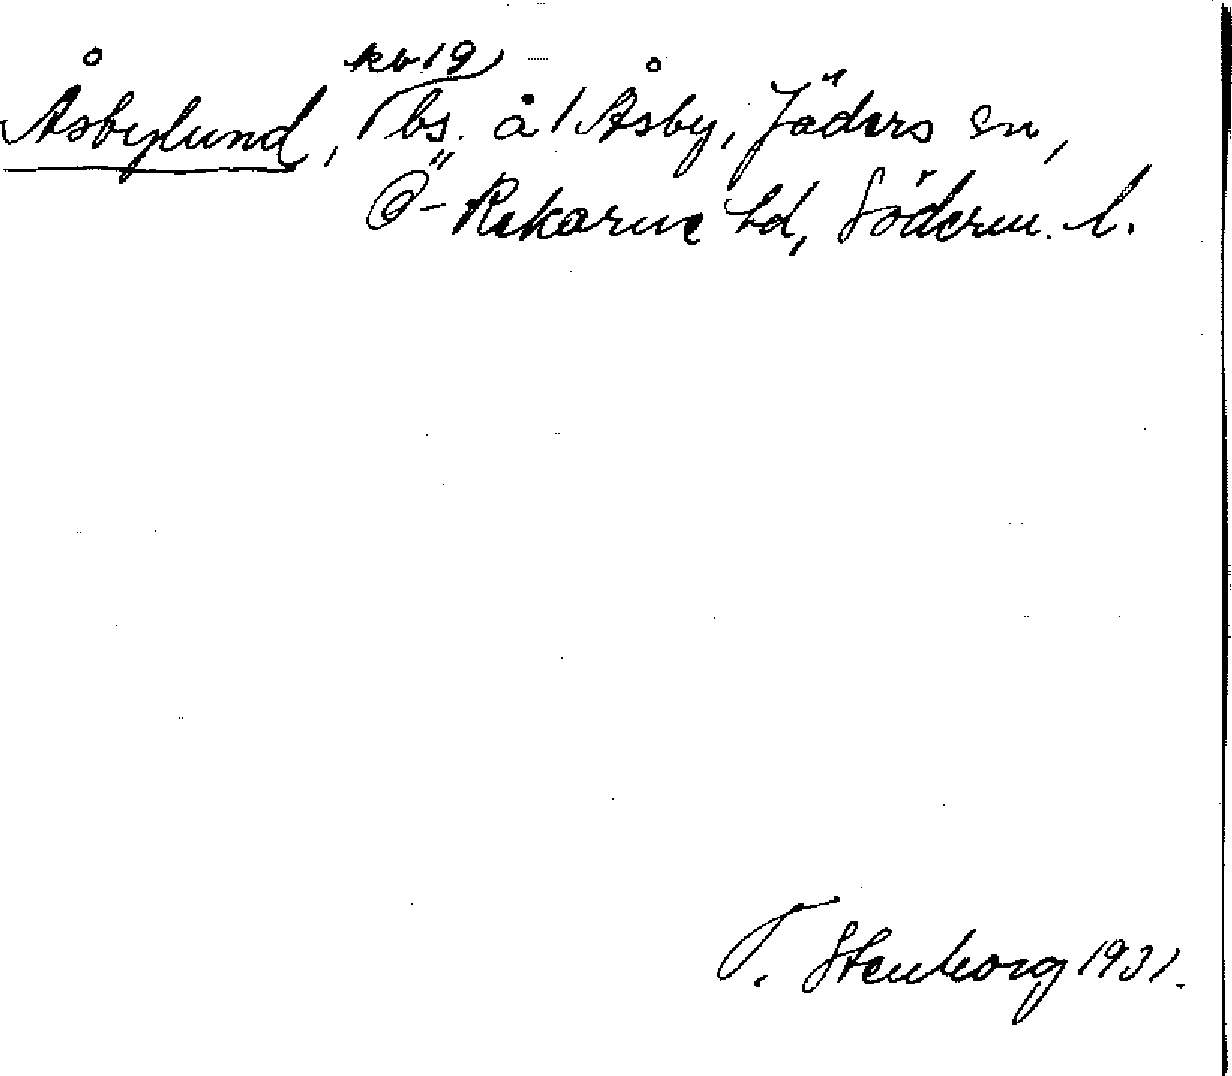 kv 19
Åsbylund, bs. å 1 Åsby, Jäders sn,
Ö-Rekarne hd, Söderm. l.
T. Stenborg 1931.